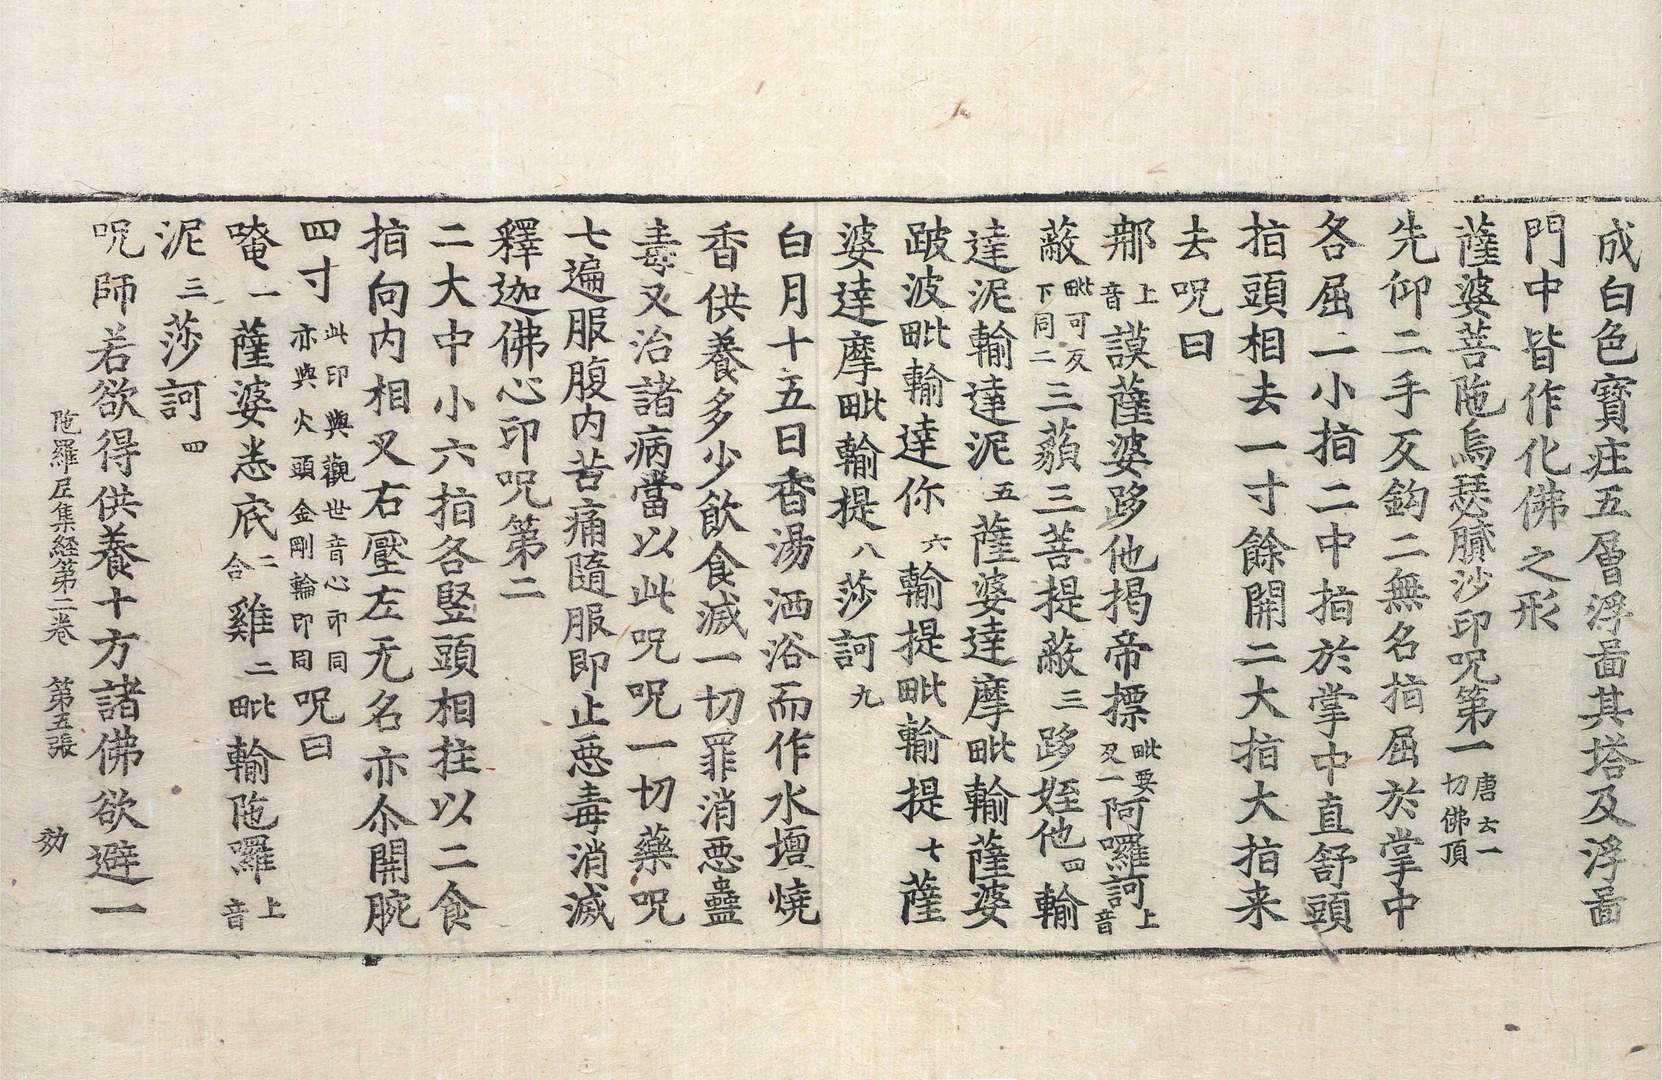 成白色寳庄五層浮啚其塔及浮啚
門中皆作化佛之形
薩婆菩陁烏瑟膩沙印呪第一唐云一切佛頂
先仰二手反鈎二無名指屈於掌中
各屈二小指二中指於掌中直舒頭
指頭相去一寸餘開二大指大指来
去呪曰
那上音謨薩婆跢他揭帝摽毗要反一阿囉訶上音
蔽毗可反下同二三藐三菩提蔽三跢姪他四輸
達泥輸達泥五薩婆達摩毗輸薩婆
跛波毗輸達你六輸提毗輸提七薩
婆達摩毗輸提八莎訶九
白月十五日香湯洒浴而作水壇燒
香供養多少飲食滅一切罪消惡蠱
毒又治諸病當以此呪呪一切藥呪
七遍服腹内苦痛隨服即止惡毒消滅
釋迦佛心印呪第二
二大中小六指各竪頭相拄以二食
指向内相叉右壓左无名亦尒開腕
四寸此印與觀世音心印同亦與火頭金剛輪印同呪曰
唵一薩婆悉底二合雞二毗輸陁囉上音
泥三莎訶四
呪師若欲得供養十方諸佛欲避一
陁羅尼集経第二卷 第五張 㓛